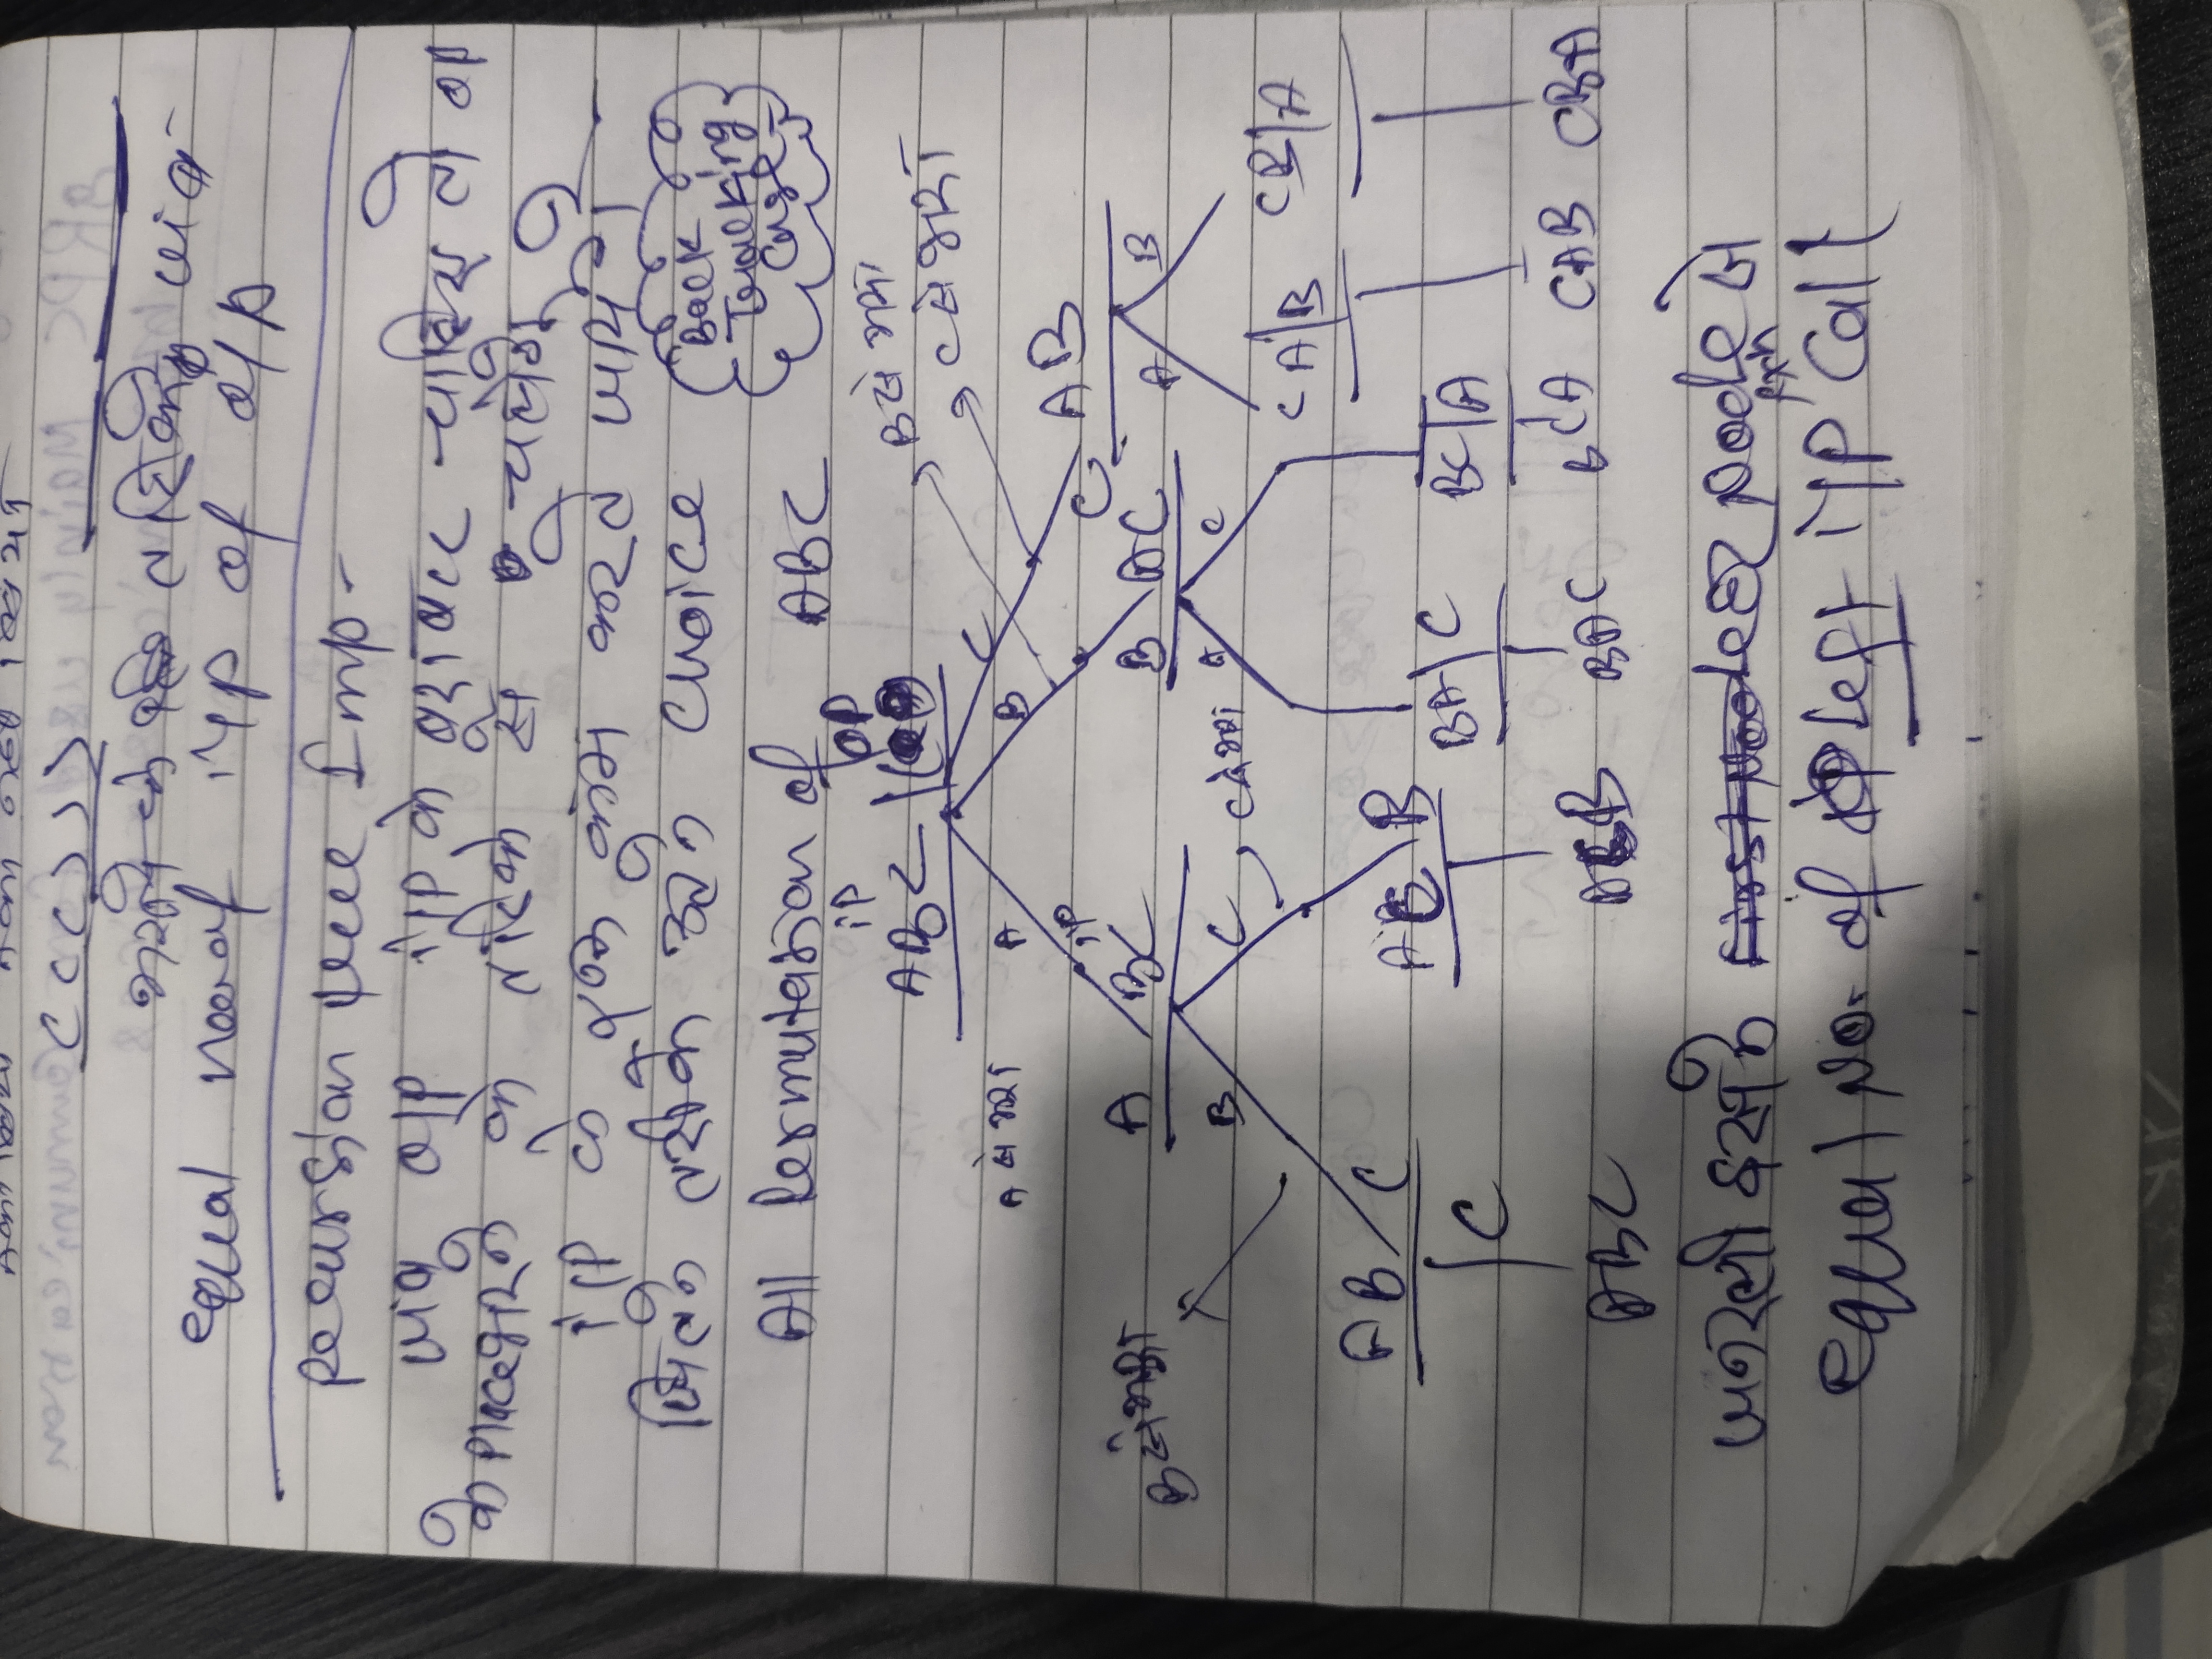 CCC)))
भरने के तरिके जब
equal no of i/p of o/p
Recursion tree Imp-
जब o/p i/p के बराबर चाहिए तो op
के place भरने के तरिके से चलेंगे
i/p को एक कम करते जायेंगे
जितने तरीके उतने choice
Back
Tracking
Case
All Permutation of ABC
ip op
ABC |
B से भरा
C से भरा
A से भरा A B C
ip
C AB
A BC
B AC
A B
B से भरा
B C C से भरा A C
CA|B CB|A
AB C
AC B
BA|C BC|A
C
ABC ACB BAC BCA CAB CBA
जनरली इसके हर Node से
fxn
equal No. of left i/p Call